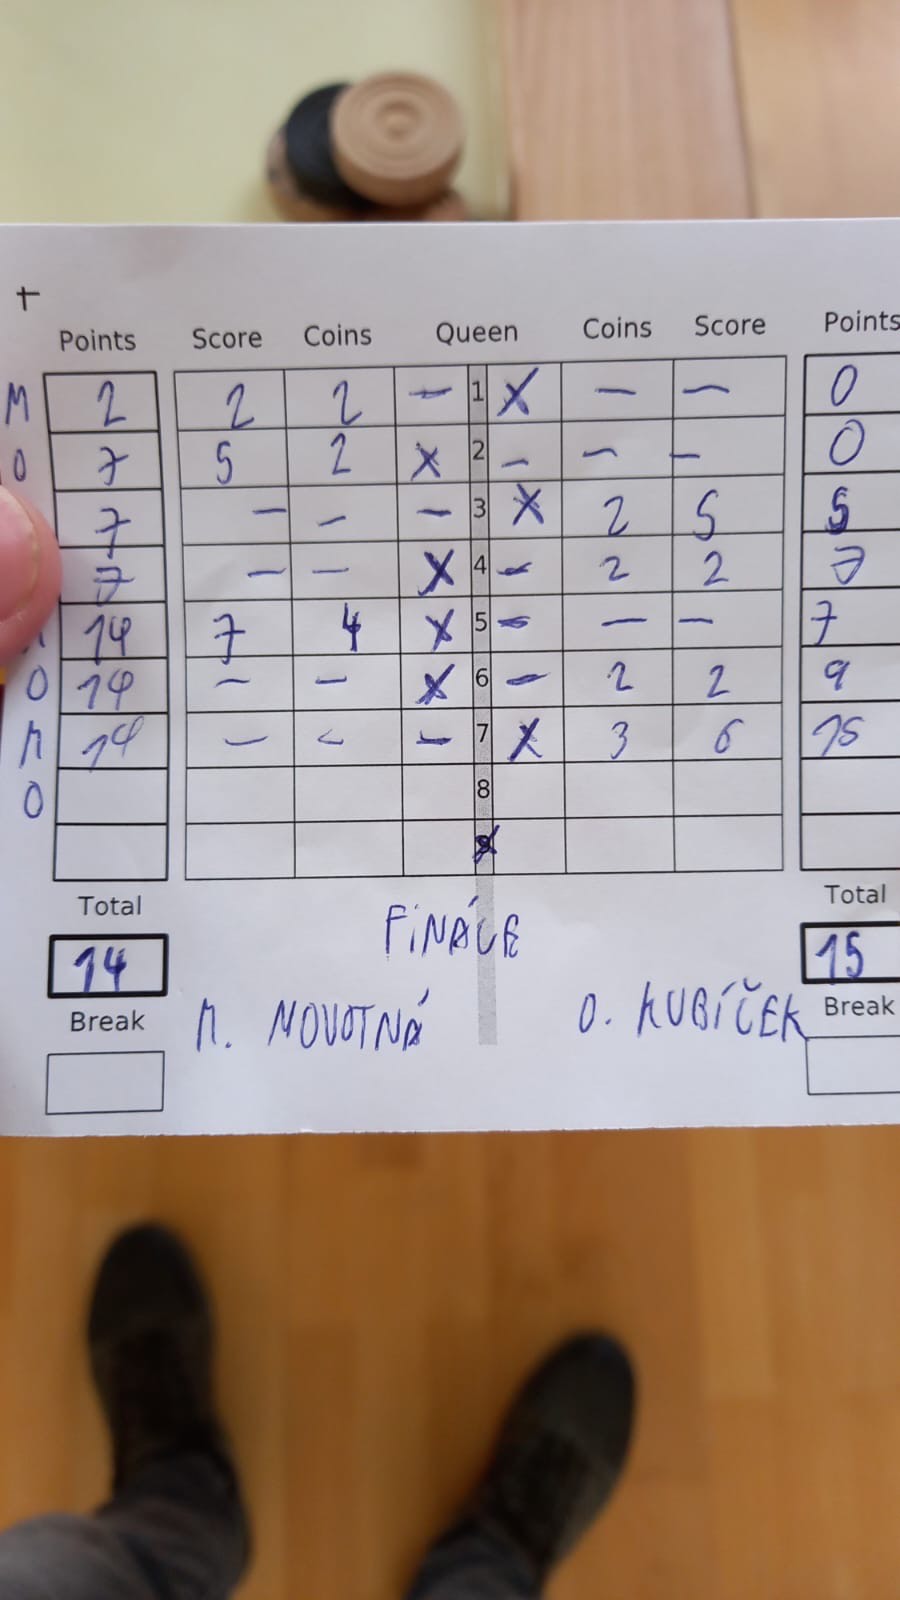 Points Score Coins Queen Coins Score Points
M 2 2 2 — 1 X — — 0
O 7 5 2 X 2 — — — 0
7 — — — 3 X 2 5 5
7 — — X 4 — 2 2 7
14 7 4 X 5 — — — 7
O 14 — — X 6 — 2 2 9
M 14 — — — 7 X 3 6 15
O 8
Total Total
FINÁLE
14 15
Break Break
M. NOVOTNÁ O. KUBÍČEK